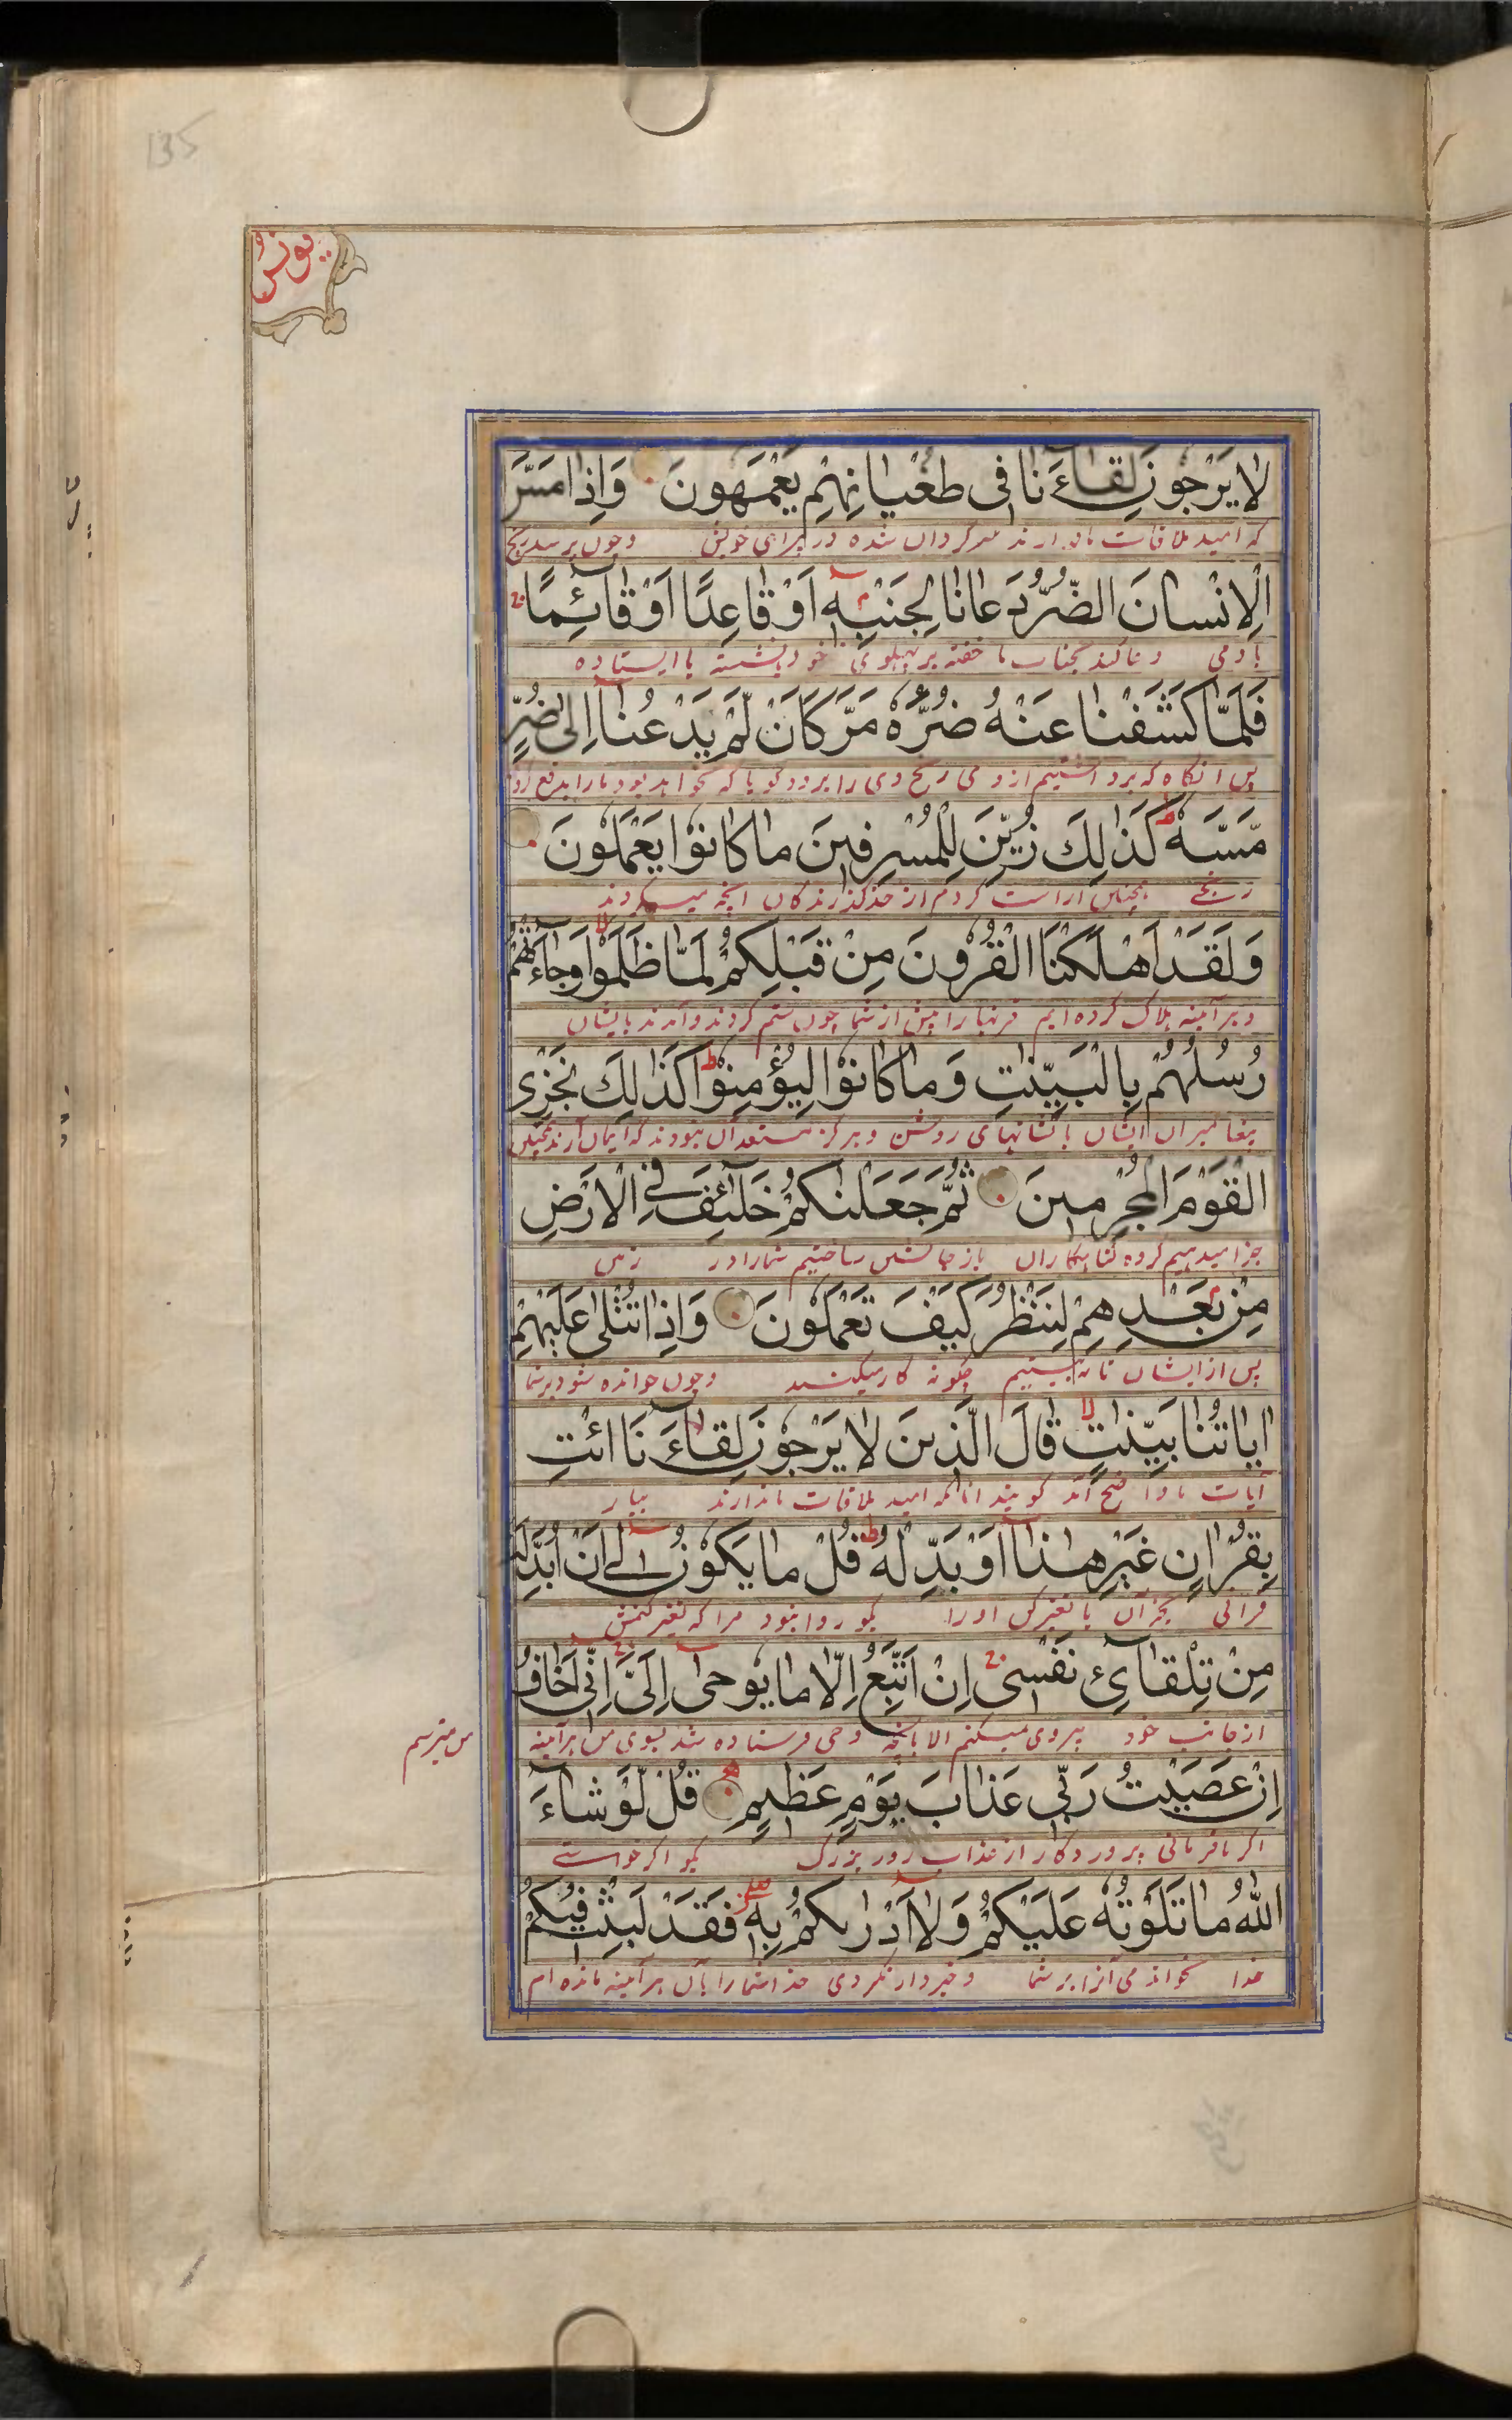 135
یونس
لا يَرْجُونَ لِقَاءَنا فى طُغْيانِهِمْ يَعْمَهُونَ وَاِذا مَسَّ
که امید ملاقات ما ندارند سرگردان شده در گمراهی خویش وچون برسد رنج
الْاِنْسانَ الضُّرُّ دَعانا لِجَنْبِهٖ اَوْ قاعِدًا اَوْ قائِمًا
بآدمی دعا کند بجناب ما خفته بر پهلوی خود یا نشسته یا ایستاده
فَلَمّا كَشَفْنا عَنْهُ ضُرَّهُ مَرَّ كَاَنْ لَّمْ يَدْعُنا اِلى ضُرٍّ
پس آنگاه که برداشتیم از وی رنج وی را برود گویا که نخوانده بود مارا بدفع
مَّسَّهُ كَذٰلِكَ زُيِّنَ لِلْمُسْرِفينَ ما كانُوْا يَعْمَلُونَ
همچنین آراسته کردم از حد گذرندگان آنچه میکردند
وَلَقَدْ اَهْلَكْنَا الْقُرُونَ مِنْ قَبْلِكُمْ لَمّا ظَلَمُوْا وَجاءَتْهُمْ
وهر آینه هلاک کرده ایم قرنها را پیش از شما چون ستم کردند وآمدند بایشان
رُسُلُهُمْ بِالْبَيِّنٰتِ وَما كانُوْا لِيُؤْمِنُوْا كَذٰلِكَ نَجْزِى
پیغامبران ایشان با نشانهای روشن وهرگز مستعد آن نبودند که ایمان آرند همچنین
الْقَوْمَ الْمُجْرِمينَ ثُمَّ جَعَلْنٰكُمْ خَلٰئِفَ فِى الْاَرْضِ
جزا میدهیم گروه گناهکاران باز جانشین ساختیم شمارا در زمین
مِنْ بَعْدِهِمْ لِنَنْظُرَ كَيْفَ تَعْمَلُونَ وَاِذا تُتْلى عَلَيْهِمْ
پس از ایشان تا به بینیم چگونه کار میکنید وچون خوانده شود بر شما
اٰياتُنا بَيِّنٰتٍ قالَ الَّذينَ لا يَرْجُونَ لِقاءَنَا ائْتِ
آیات ما واضح آمد گویند آنانکه امید ملاقات ما ندارند بیار
بِقُرْاٰنٍ غَيْرِ هٰذا اَوْ بَدِّلْهُ قُلْ ما يَكُوْنُ لى اَنْ اُبَدِّلَهُ
قرآنی بجز آن یا تغیر کن اورا بگو روا نبود مرا که تغیر کنمش
مِنْ تِلْقائِ نَفْسى اِنْ اَتَّبِعُ اِلّا ما يُوحى اِلَىَّ اِنّى اَخافُ
از جانب خود پیروی نمیکنم الا بآنچه وحی فرستاده شد بسوی من هرآینه
من میترسم
اِنْ عَصَيْتُ رَبّى عَذابَ يَوْمٍ عَظيمٍ قُلْ لَّوْ شاءَ
اگر نافرمانی پروردگار از عذاب روز بزرگ بگو اگر خواستے
اللهُ ما تَلَوْتُهُ عَلَيْكُمْ وَلا اَدْرٰىكُمْ بِهٖ فَقَدْ لَبِثْتُ فِيْكُمْ
خدا نخواندمی آنرا بر شما وخبردار نکردی خدا شمارا بآن هر آینه مانده ام